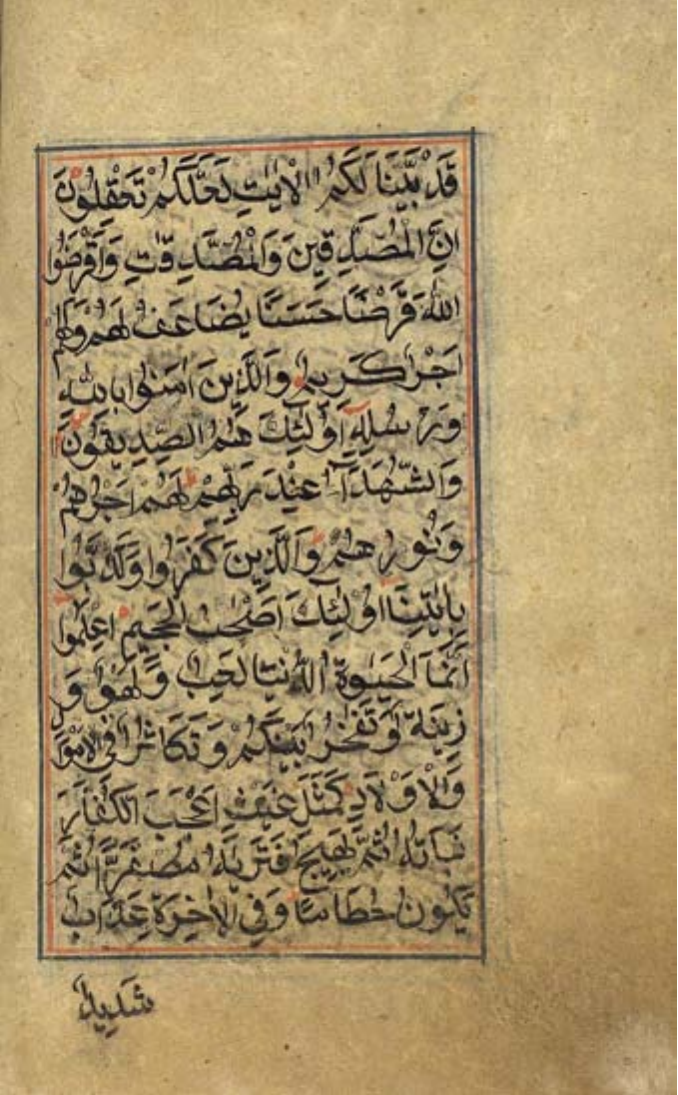 قَدْ بَيَّنَّا لَكُمُ الْاٰيٰتِ لَعَلَّكُمْ تَعْقِلُوْنَ
اِنَّ الْمُصَّدِّقِيْنَ وَالْمُصَّدِّقٰتِ وَاَقْرَضُوا
اللّٰهَ قَرْضًا حَسَنًا يُضَاعَفُ لَهُمْ وَلَهُمْ
اَجْرٌ كَرِيمٌ وَالَّذِيْنَ اٰمَنُوْا بِاللّٰهِ
وَرُسُلِهٖ اُولٰئِكَ هُمُ الصِّدِّيْقُوْنَ
وَالشُّهَدَآءُ عِنْدَ رَبِّهِمْ لَهُمْ اَجْرُهُمْ
وَنُوْرُهُمْ وَالَّذِيْنَ كَفَرُوْا وَكَذَّبُوا
بِاٰيٰتِنَا اُولٰئِكَ اَصْحٰبُ الْجَحِيْمِ اِعْلَمُوا
اَنَّمَا الْحَيٰوةُ الدُّنْيَا لَعِبٌ وَلَهْوٌ وَ
زِيْنَةٌ وَتَفَاخُرٌ بَيْنَكُمْ وَتَكَاثُرٌ فِى الْاَمْوَا
وَالْاَوْلَادِ كَمَثَلِ غَيْثٍ اَعْجَبَ الْكُفَّارَ
نَبَاتُهُ ثُمَّ يَهِيْجُ فَتَرٰيهُ مُصْفَرًّا ثُمَّ
يَكُوْنُ حُطَامًا وَفِى الْاٰخِرَةِ عَذَابٌ
شَدِيْدٌ